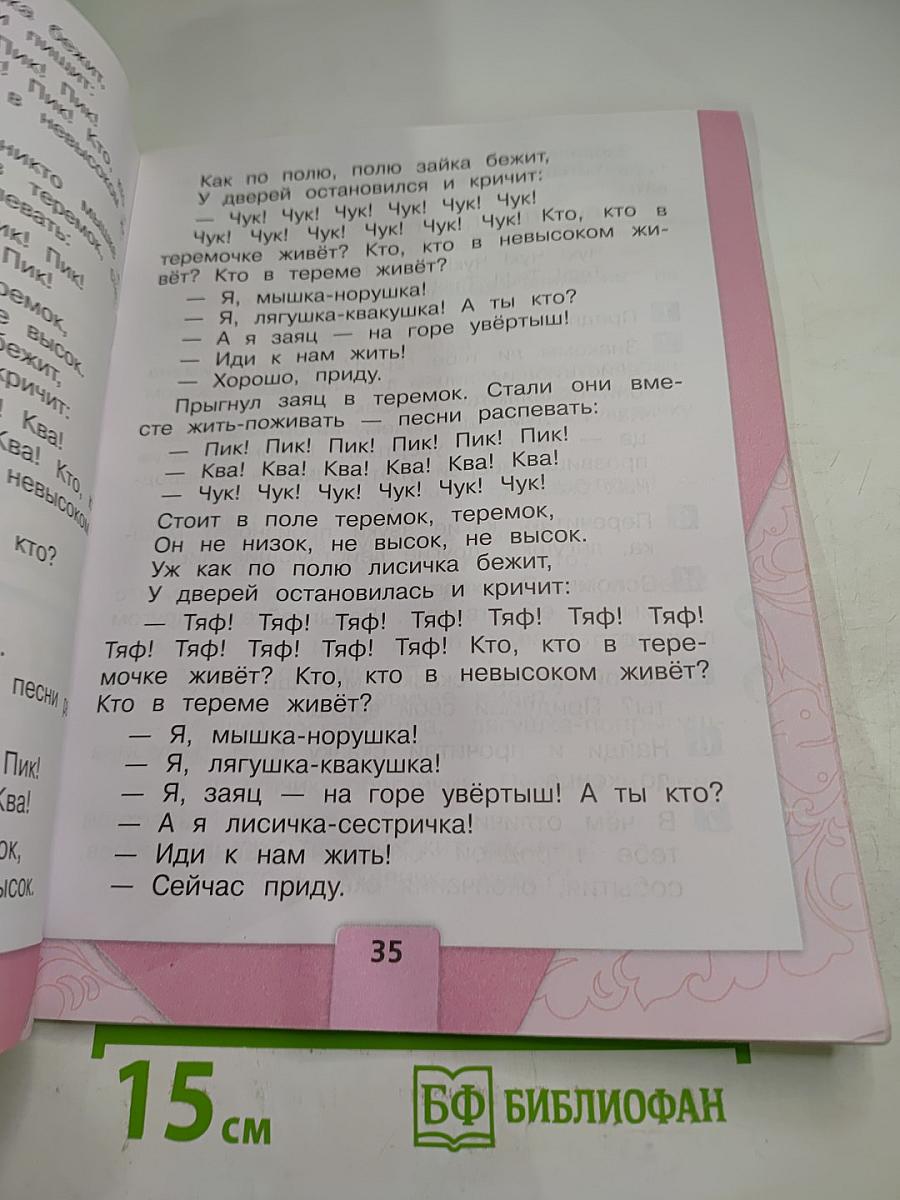 бежит,
пищит:
Пик! Пик!
Пик! Кто,
в невысоком
никто
теремок,
Пик!
Пик!
высок.
бежит,
кричит:
Ква!
Ква! Кто,
невысоком
кто?
песни
Пик!
Ква!
Как по полю, полю зайка бежит,
У дверей остановился и кричит:
— Чук! Чук! Чук! Чук! Чук! Чук!
Чук! Чук! Чук! Чук! Чук! Чук! Кто, кто в
теремочке живёт? Кто, кто в невысоком жи-
вёт? Кто в тереме живёт?
— Я, мышка-норушка!
— Я, лягушка-квакушка! А ты кто?
— А я заяц — на горе увёртыш!
— Иди к нам жить!
— Хорошо, приду.
Прыгнул заяц в теремок. Стали они вме-
сте жить-поживать — песни распевать:
— Пик! Пик! Пик! Пик! Пик! Пик!
— Ква! Ква! Ква! Ква! Ква! Ква!
— Чук! Чук! Чук! Чук! Чук! Чук!
Стоит в поле теремок, теремок,
Он не низок, не высок, не высок.
Уж как по полю лисичка бежит,
У дверей остановилась и кричит:
— Тяф! Тяф! Тяф! Тяф! Тяф! Тяф! Тяф!
Тяф! Тяф! Тяф! Тяф! Тяф! Кто, кто в тере-
мочке живёт? Кто, кто в невысоком живёт?
Кто в тереме живёт?
— Я, мышка-норушка!
— Я, лягушка-квакушка!
— Я, заяц — на горе увёртыш! А ты кто?
— А я лисичка-сестричка!
— Иди к нам жить!
— Сейчас приду.
35
15 см
БФ БИБЛИОФАН